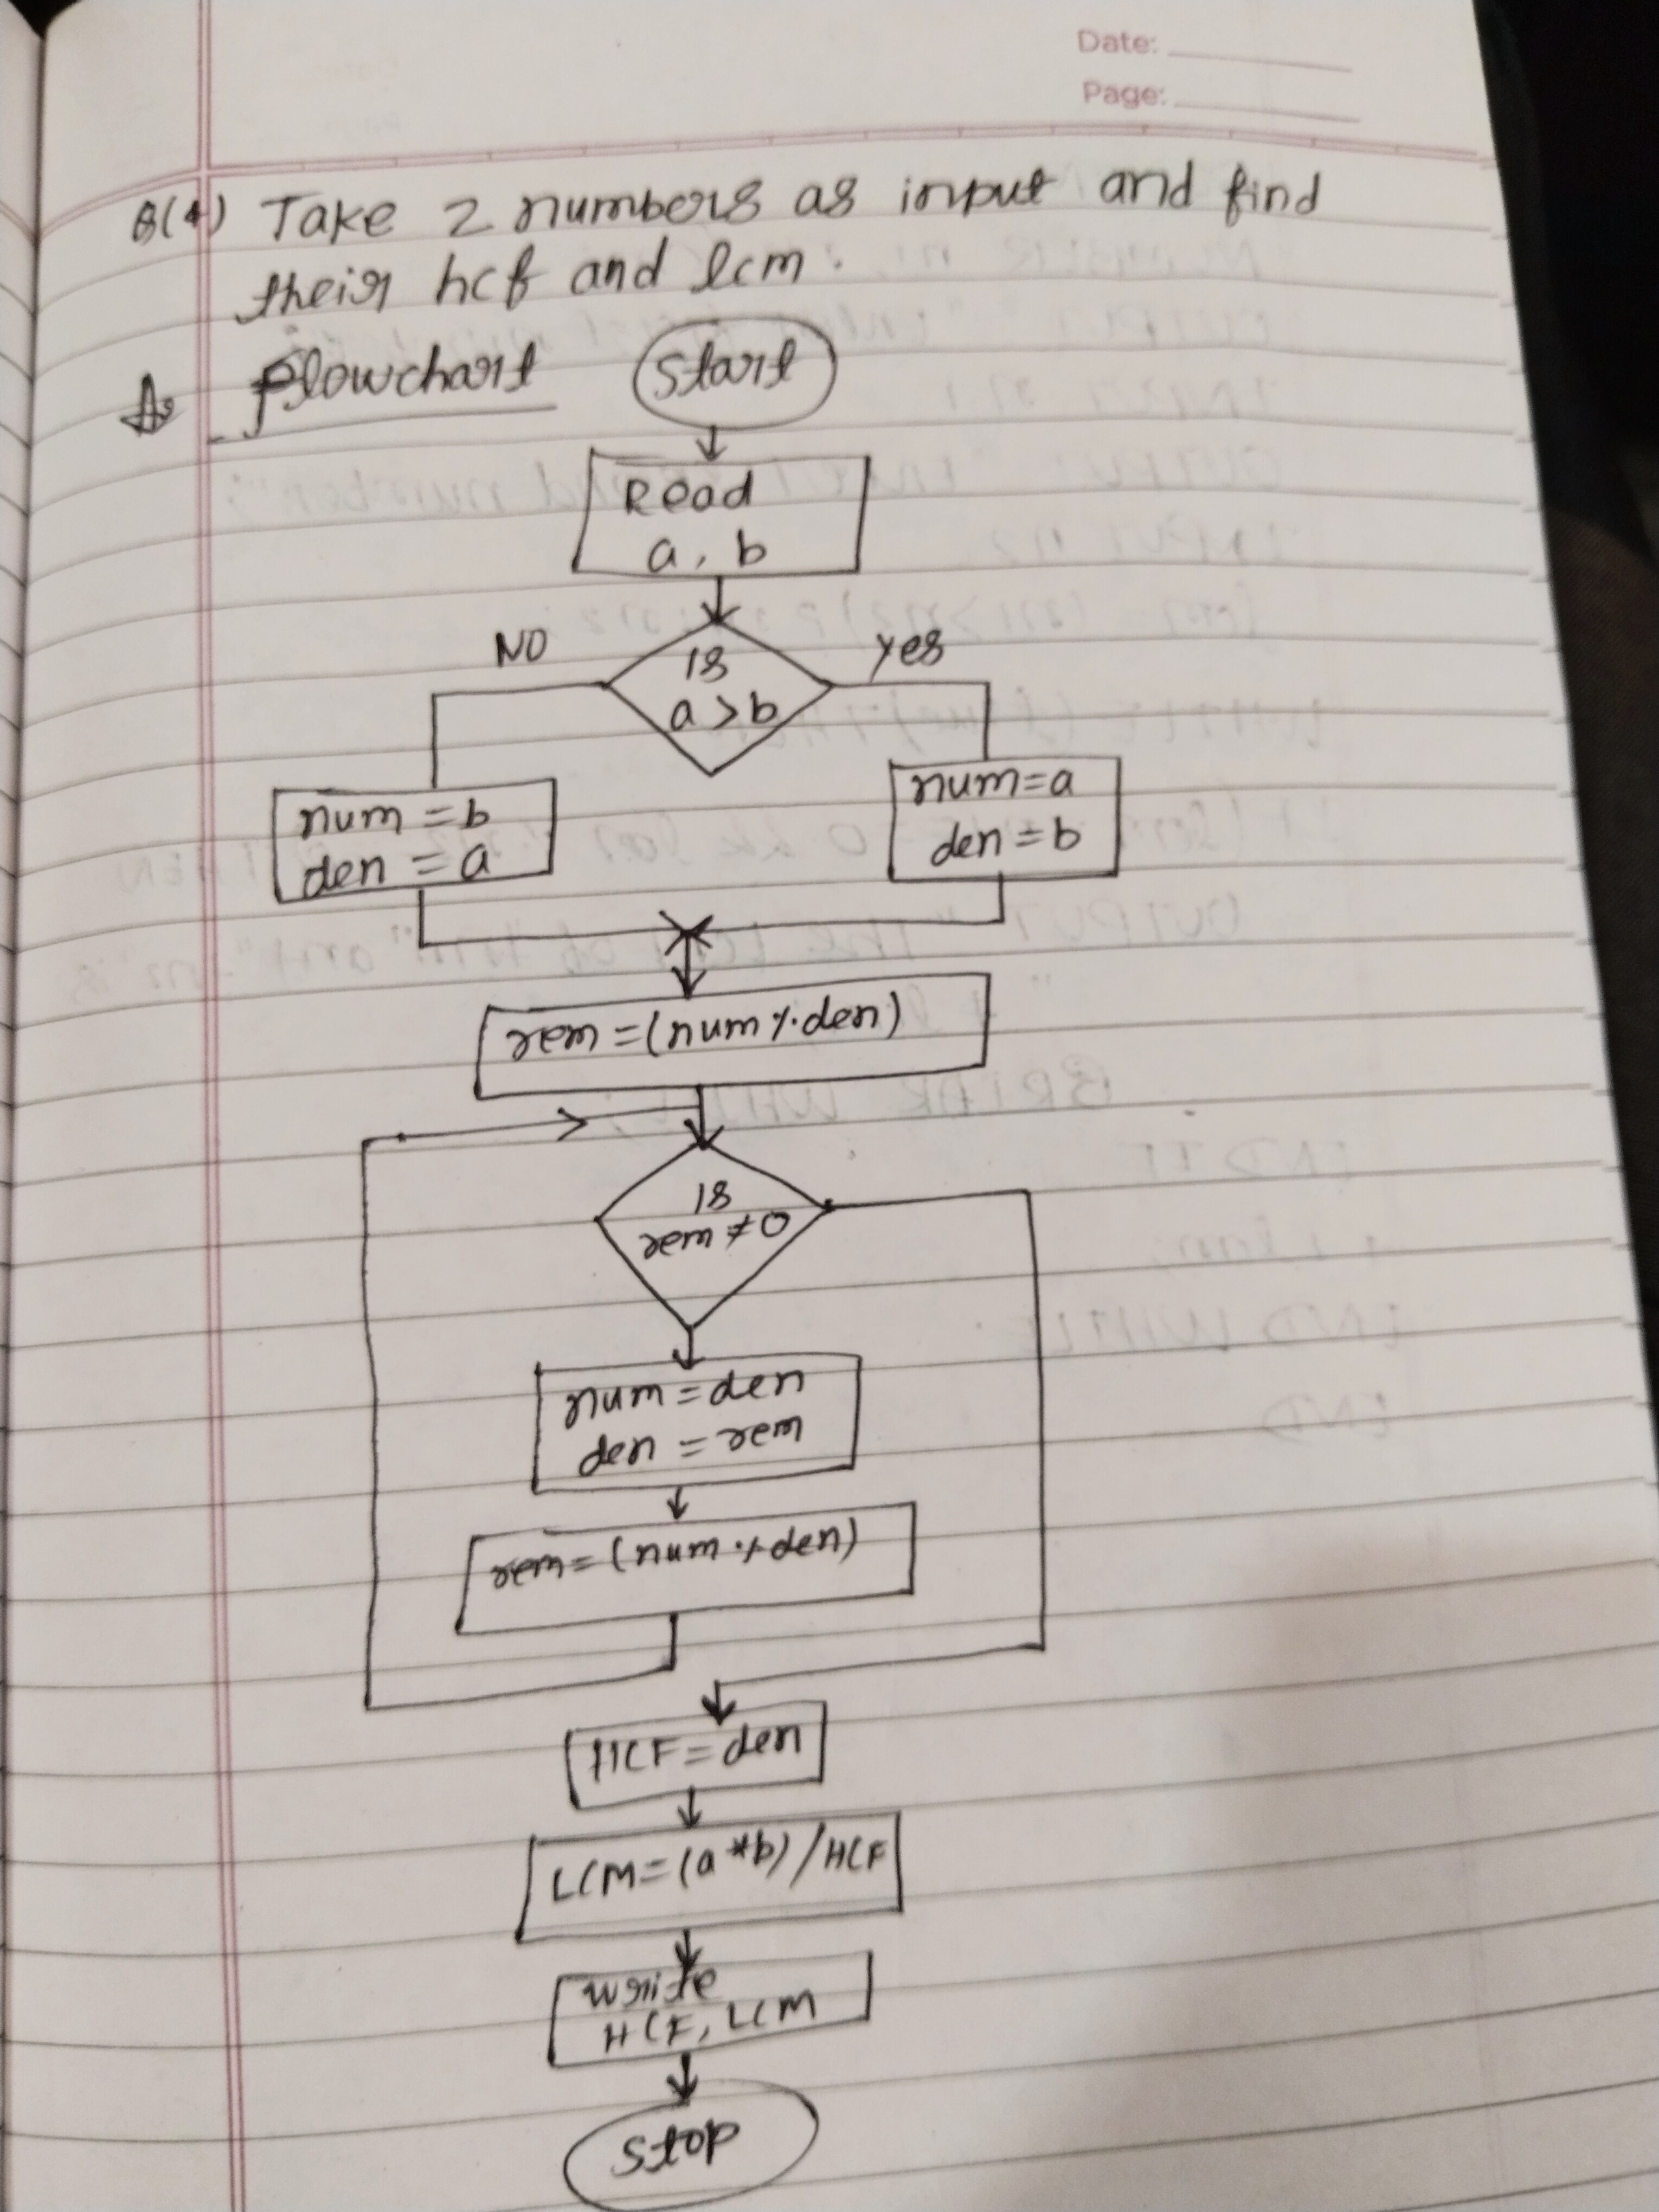 Date:
Page:
Q(4) Take 2 numbers as input and find
their hcf and lcm.
A:
Flowchart
Start
Read
a, b
Is
a > b
NO
Yes
num = b
den = a
num = a
den = b
rem = (num % den)
Is
rem ≠ 0
num = den
den = rem
rem = (num % den)
HCF = den
LCM = (a * b) / HCF
Write
HCF, LCM
Stop